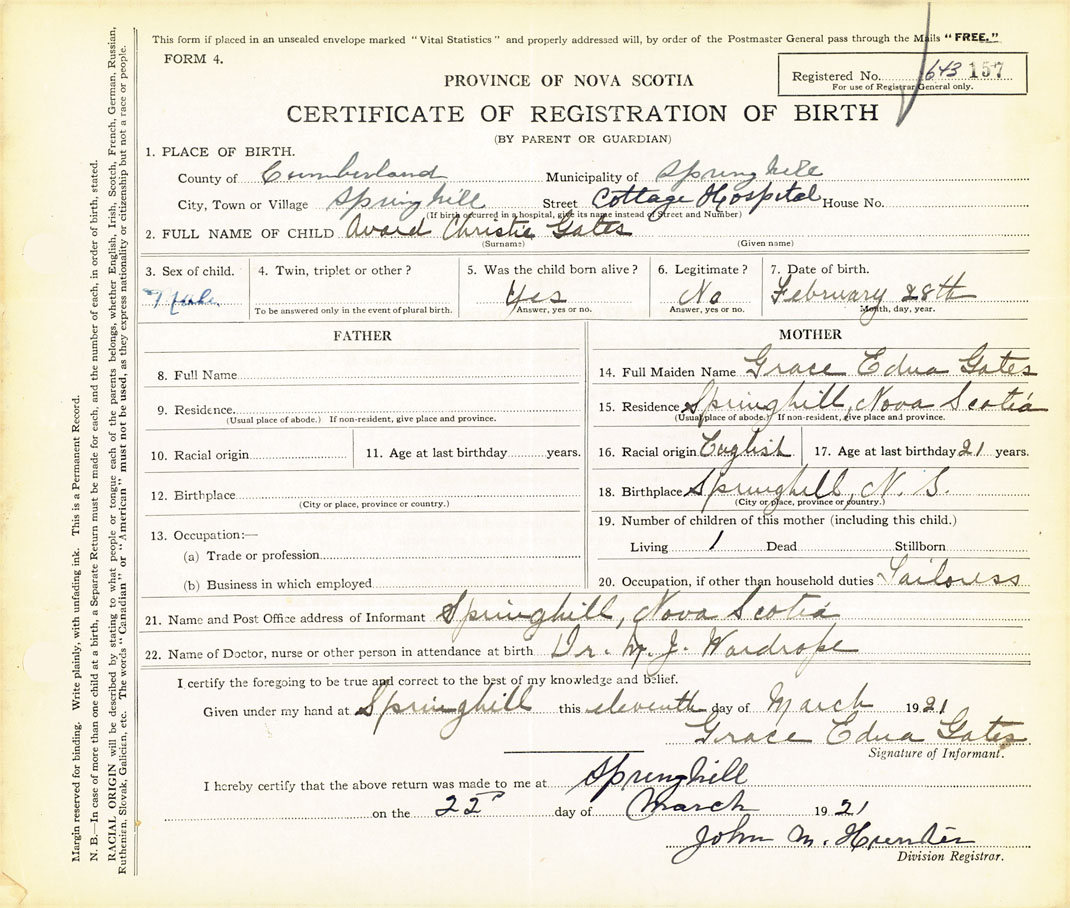 This form if placed in an unsealed envelope marked "Vital Statistics" and properly addressed will, by order of the Postmaster General pass through the Mails "FREE."
FORM 4.
Registered No. 643 157
For use of Registrar General only.
PROVINCE OF NOVA SCOTIA
CERTIFICATE OF REGISTRATION OF BIRTH
(BY PARENT OR GUARDIAN)
1. PLACE OF BIRTH.
County of Cumberland Municipality of Springhill
City, Town or Village Springhill Street Cottage Hospital House No.
(If birth occurred in a hospital, give its name instead of Street and Number)
2. FULL NAME OF CHILD Avard Christie Gates
(Surname) (Given name)
3. Sex of child. 4. Twin, triplet or other? 5. Was the child born alive? 6. Legitimate? 7. Date of birth.
Male Yes No February 28th
To be answered only in the event of plural birth. Answer, yes or no. Answer, yes or no. Month, day, year.
FATHER
8. Full Name
9. Residence
(Usual place of abode.) If non-resident, give place and province.
10. Racial origin 11. Age at last birthday years.
12. Birthplace
(City or place, province or country.)
13. Occupation:—
(a) Trade or profession
(b) Business in which employed
MOTHER
14. Full Maiden Name Grace Edna Gates
15. Residence Springhill, Nova Scotia
(Usual place of abode.) If non-resident, give place and province.
16. Racial origin English 17. Age at last birthday 21 years.
18. Birthplace Springhill, N. S.
(City or place, province or country.)
19. Number of children of this mother (including this child.)
Living 1 Dead Stillborn
20. Occupation, if other than household duties Tailoress
21. Name and Post Office address of Informant Springhill, Nova Scotia
22. Name of Doctor, nurse or other person in attendance at birth Dr. M. J. Wardrope
I certify the foregoing to be true and correct to the best of my knowledge and belief.
Given under my hand at Springhill this eleventh day of March 1921
Grace Edna Gates
Signature of Informant.
I hereby certify that the above return was made to me at Springhill
on the 22nd day of March 1921
John M. Hunter
Division Registrar.
Margin reserved for binding. Write plainly, with unfading ink. This is a Permanent Record.
N. B.—In case of more than one child at a birth, a Separate Return must be made for each, and the number of each, in order of birth, stated.
RACIAL ORIGIN will be described by stating to what people or tongue each of the parents belongs, whether English, Irish, Scotch, French, German, Russian,
Ruthenian, Slovak, Galicien, etc. The words "Canadian" or "American" must not be used, as they express nationality or citizenship but not a race or people.